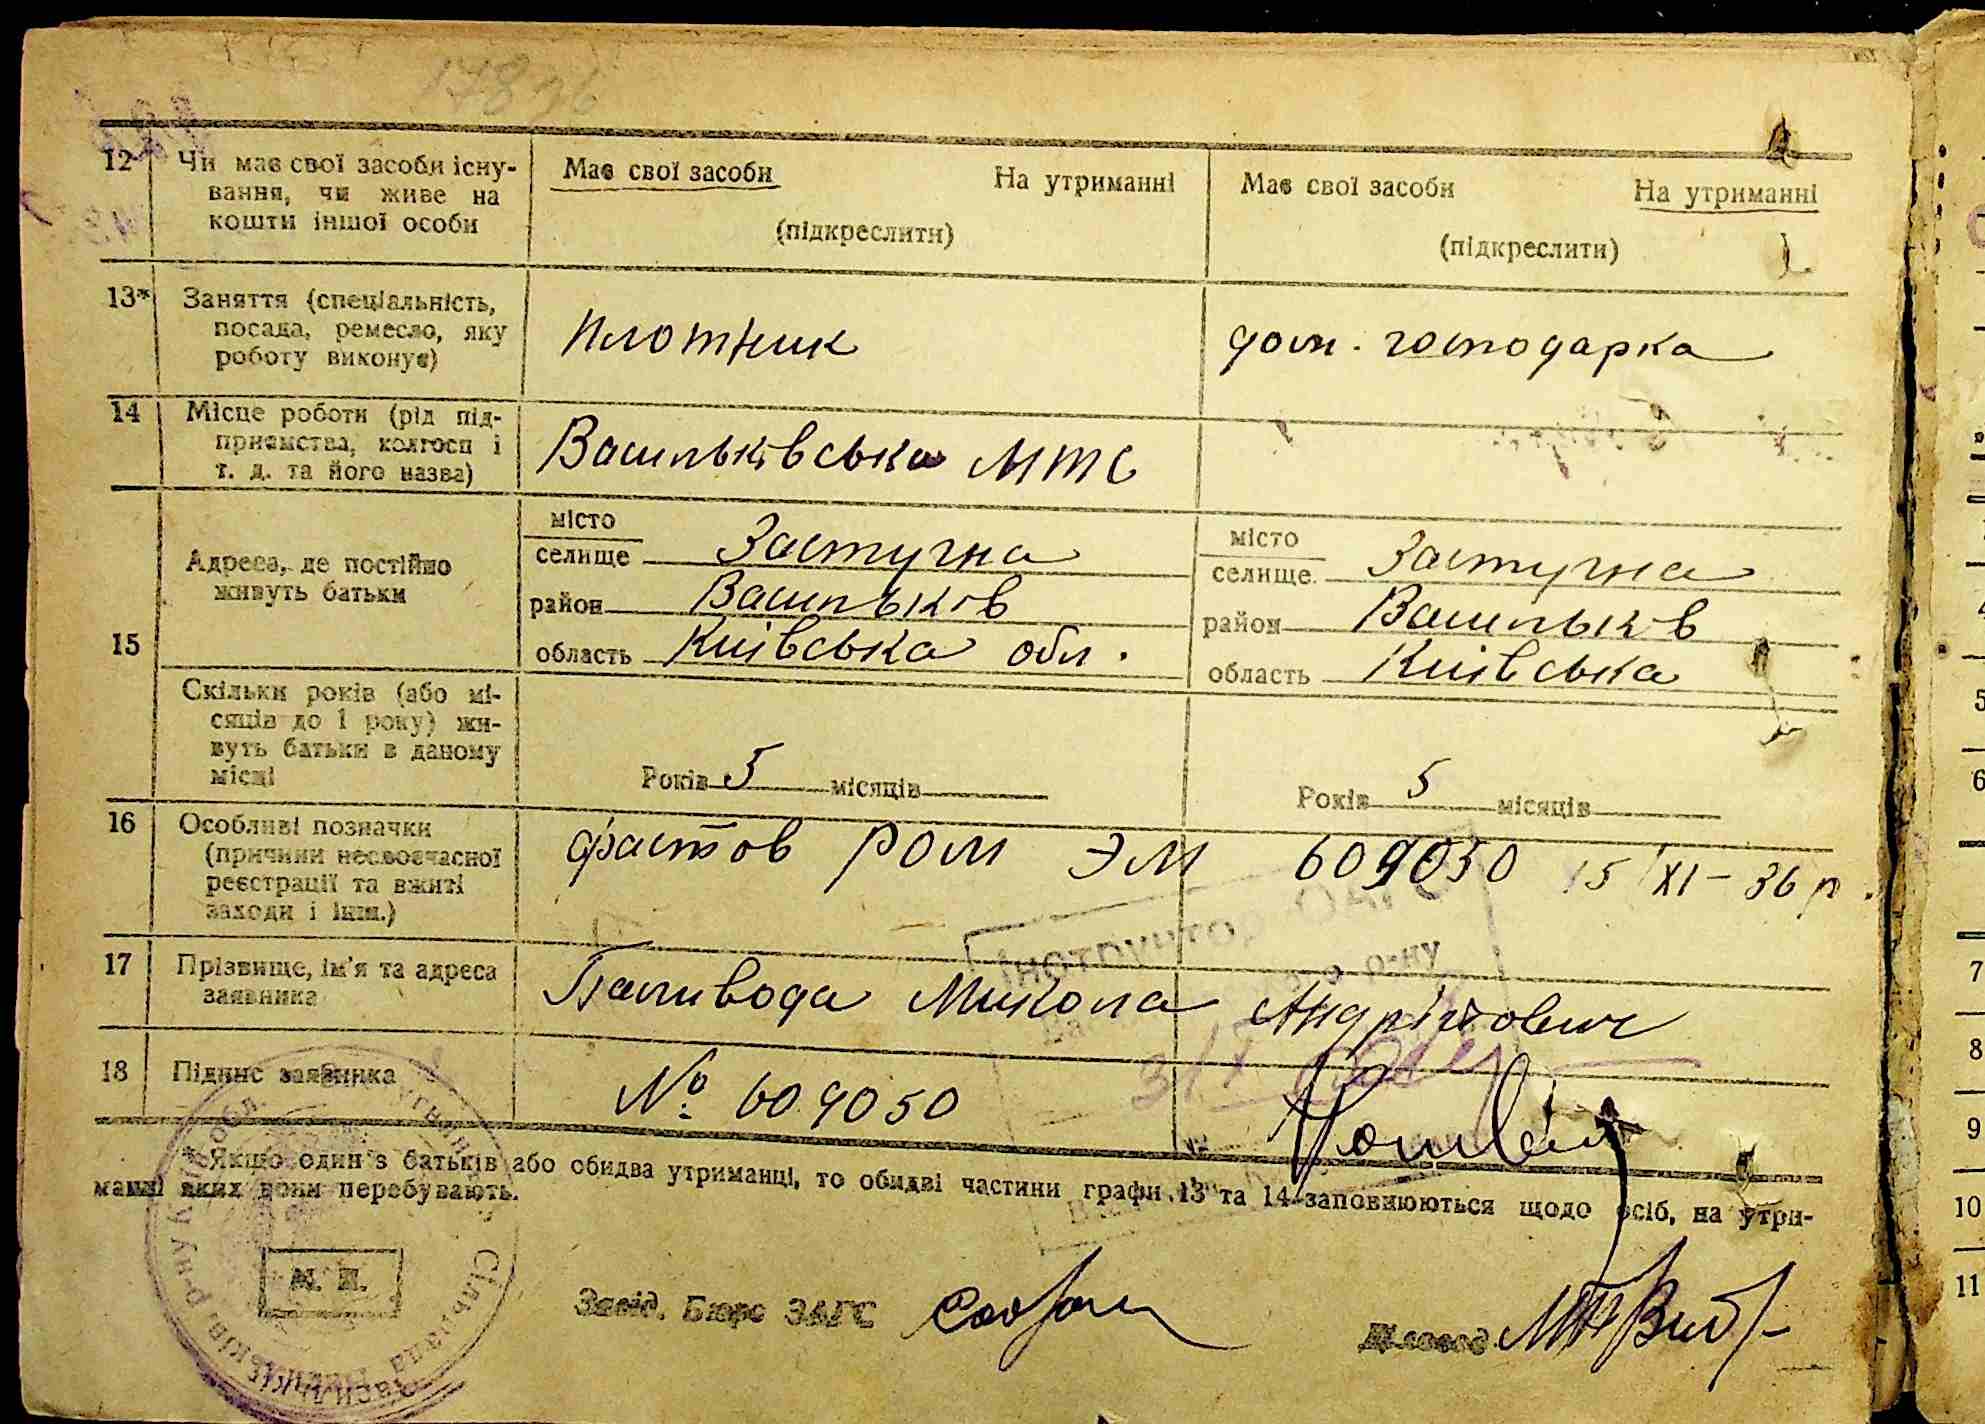 17836
12 Чи має свої засоби існу-
вання, чи живе на
кошти іншої особи
Має свої засоби На утриманні
(підкреслити)
Має свої засоби На утриманні
(підкреслити)
13* Заняття (спеціальність,
посада, ремесло, яку
роботу виконує)
Плотник
дом. господарка
14 Місце роботи (рід під-
приємства, колгосп і
т. д. та його назва)
Васильківська МТС
15
Адреса, де постійно
живуть батьки
місто
селище Застугна
район Васильків
область Київська обл.
місто
селище Застугна
район Васильків
область Київська
Скільки років (або мі-
сяців до 1 року) жи-
вуть батьки в даному
місці
Років 5 місяців
Років 5 місяців
16 Особливі позначки
(причини несвоєчасної
реєстрації та вжиті
заходи і інш.)
Фастов РОМ ЭМ 609050 15/XI-36 р.
Інструктор ОАГС
р-ну
17 Прізвище, ім'я та адреса
заявника
Паливода Микола Андрійович
18 Підпис заявника
№ 609050
* Якщо один з батьків або обидва утриманці, то обидві частини графи 13 та 14 заповнюються щодо осіб, на утри-
манні яких вони перебувають.
М. П.
Завід. Бюро ЗАГС
Діловод
5
6
7
8
9
10
11